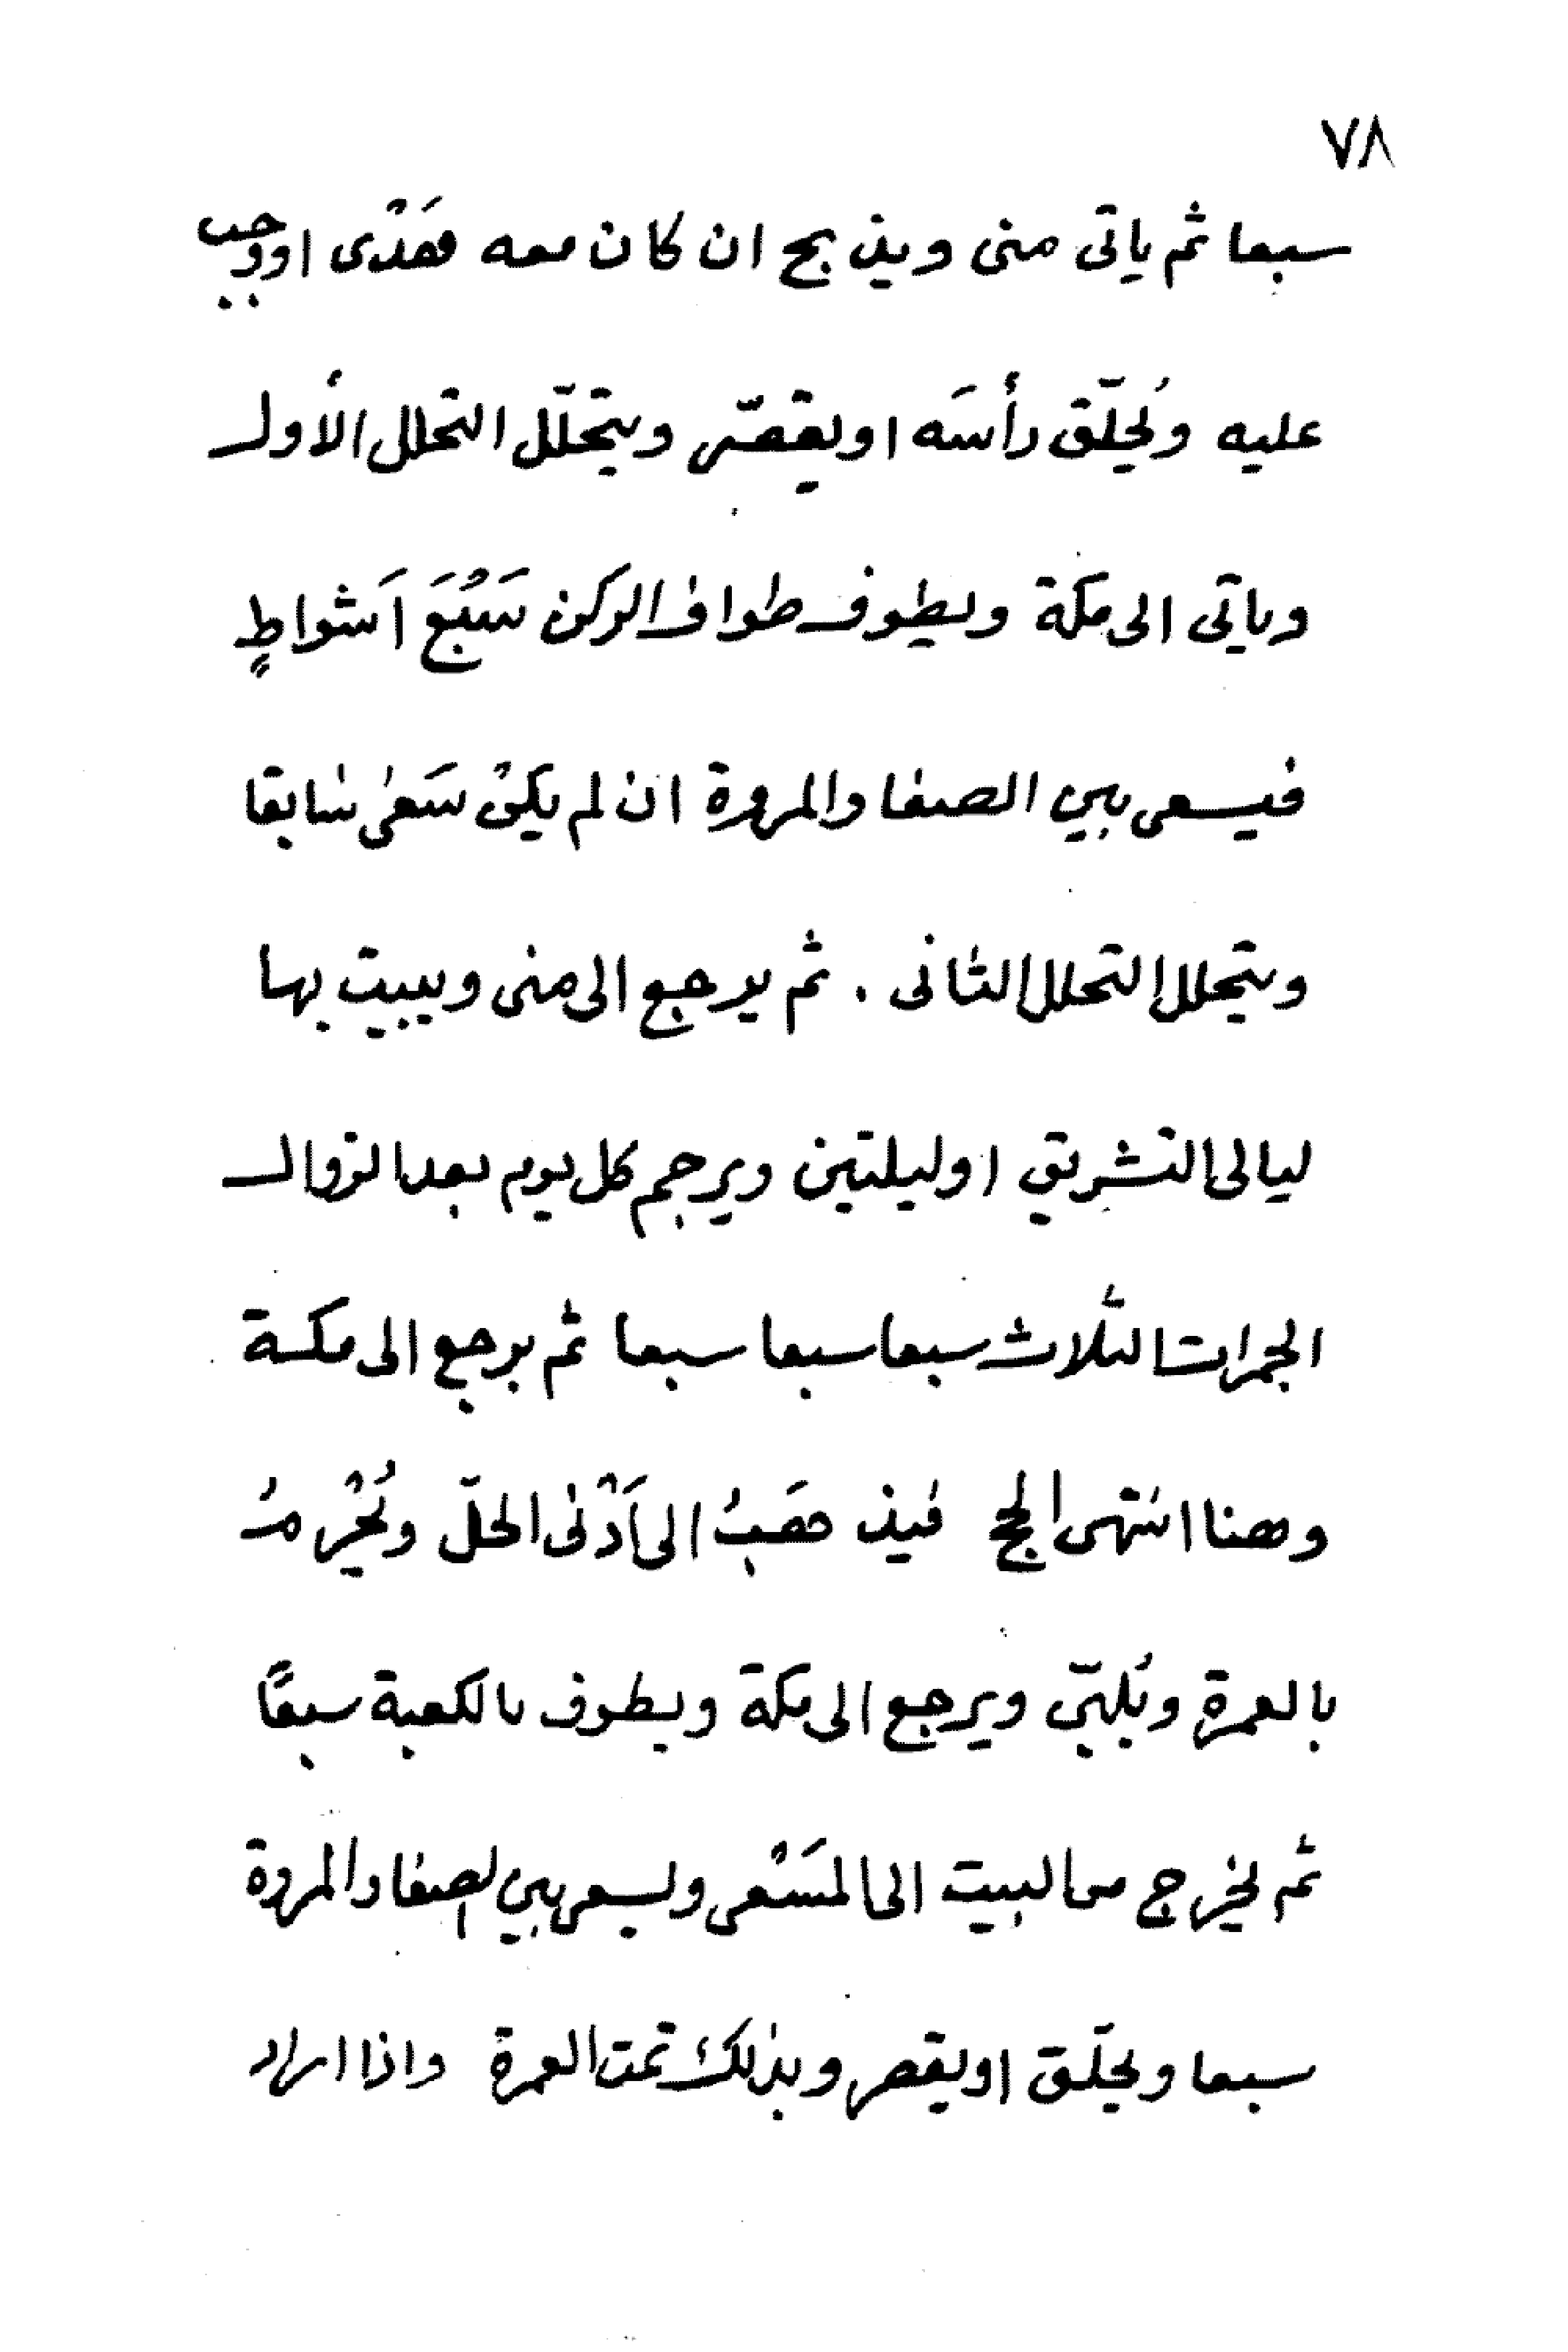 ٧٨
سبعا ثم ياتى منى ويذبح ان كان معه هَدْى او وجب
عليه ويُحلّق رأسَه او يقصّر ويتحلّل التحلل الأول
وياتى الى مكة ويطوف طواف الركن سَبْعَ اَشواطٍ
فيسعى بين الصفا والمروة ان لم يكنْ سَعٰى سابقا
ويتحلل التحلل الثانى . ثم يرجع الى منى ويبيت بها
ليالى التشريق او ليلتين ويرجم كل يوم بعد الزوال
الجمرات الثلاث سبعا سبعا سبعا ثم يرجع الى مكة
وهنا انتهى الحج فيذهَبُ الى اَدْنٰى الحلّ ويُحْرِمُ
بالعمرة ويُلبّى ويرجع الى مكة ويطوف بالكعبة سبعًا
ثم يخرج من البيت الى المسَْعى ويسعى بين الصفا والمروة
سبعا ويحلّق او يقصر وبذلك تمت العمرة واذا اراد